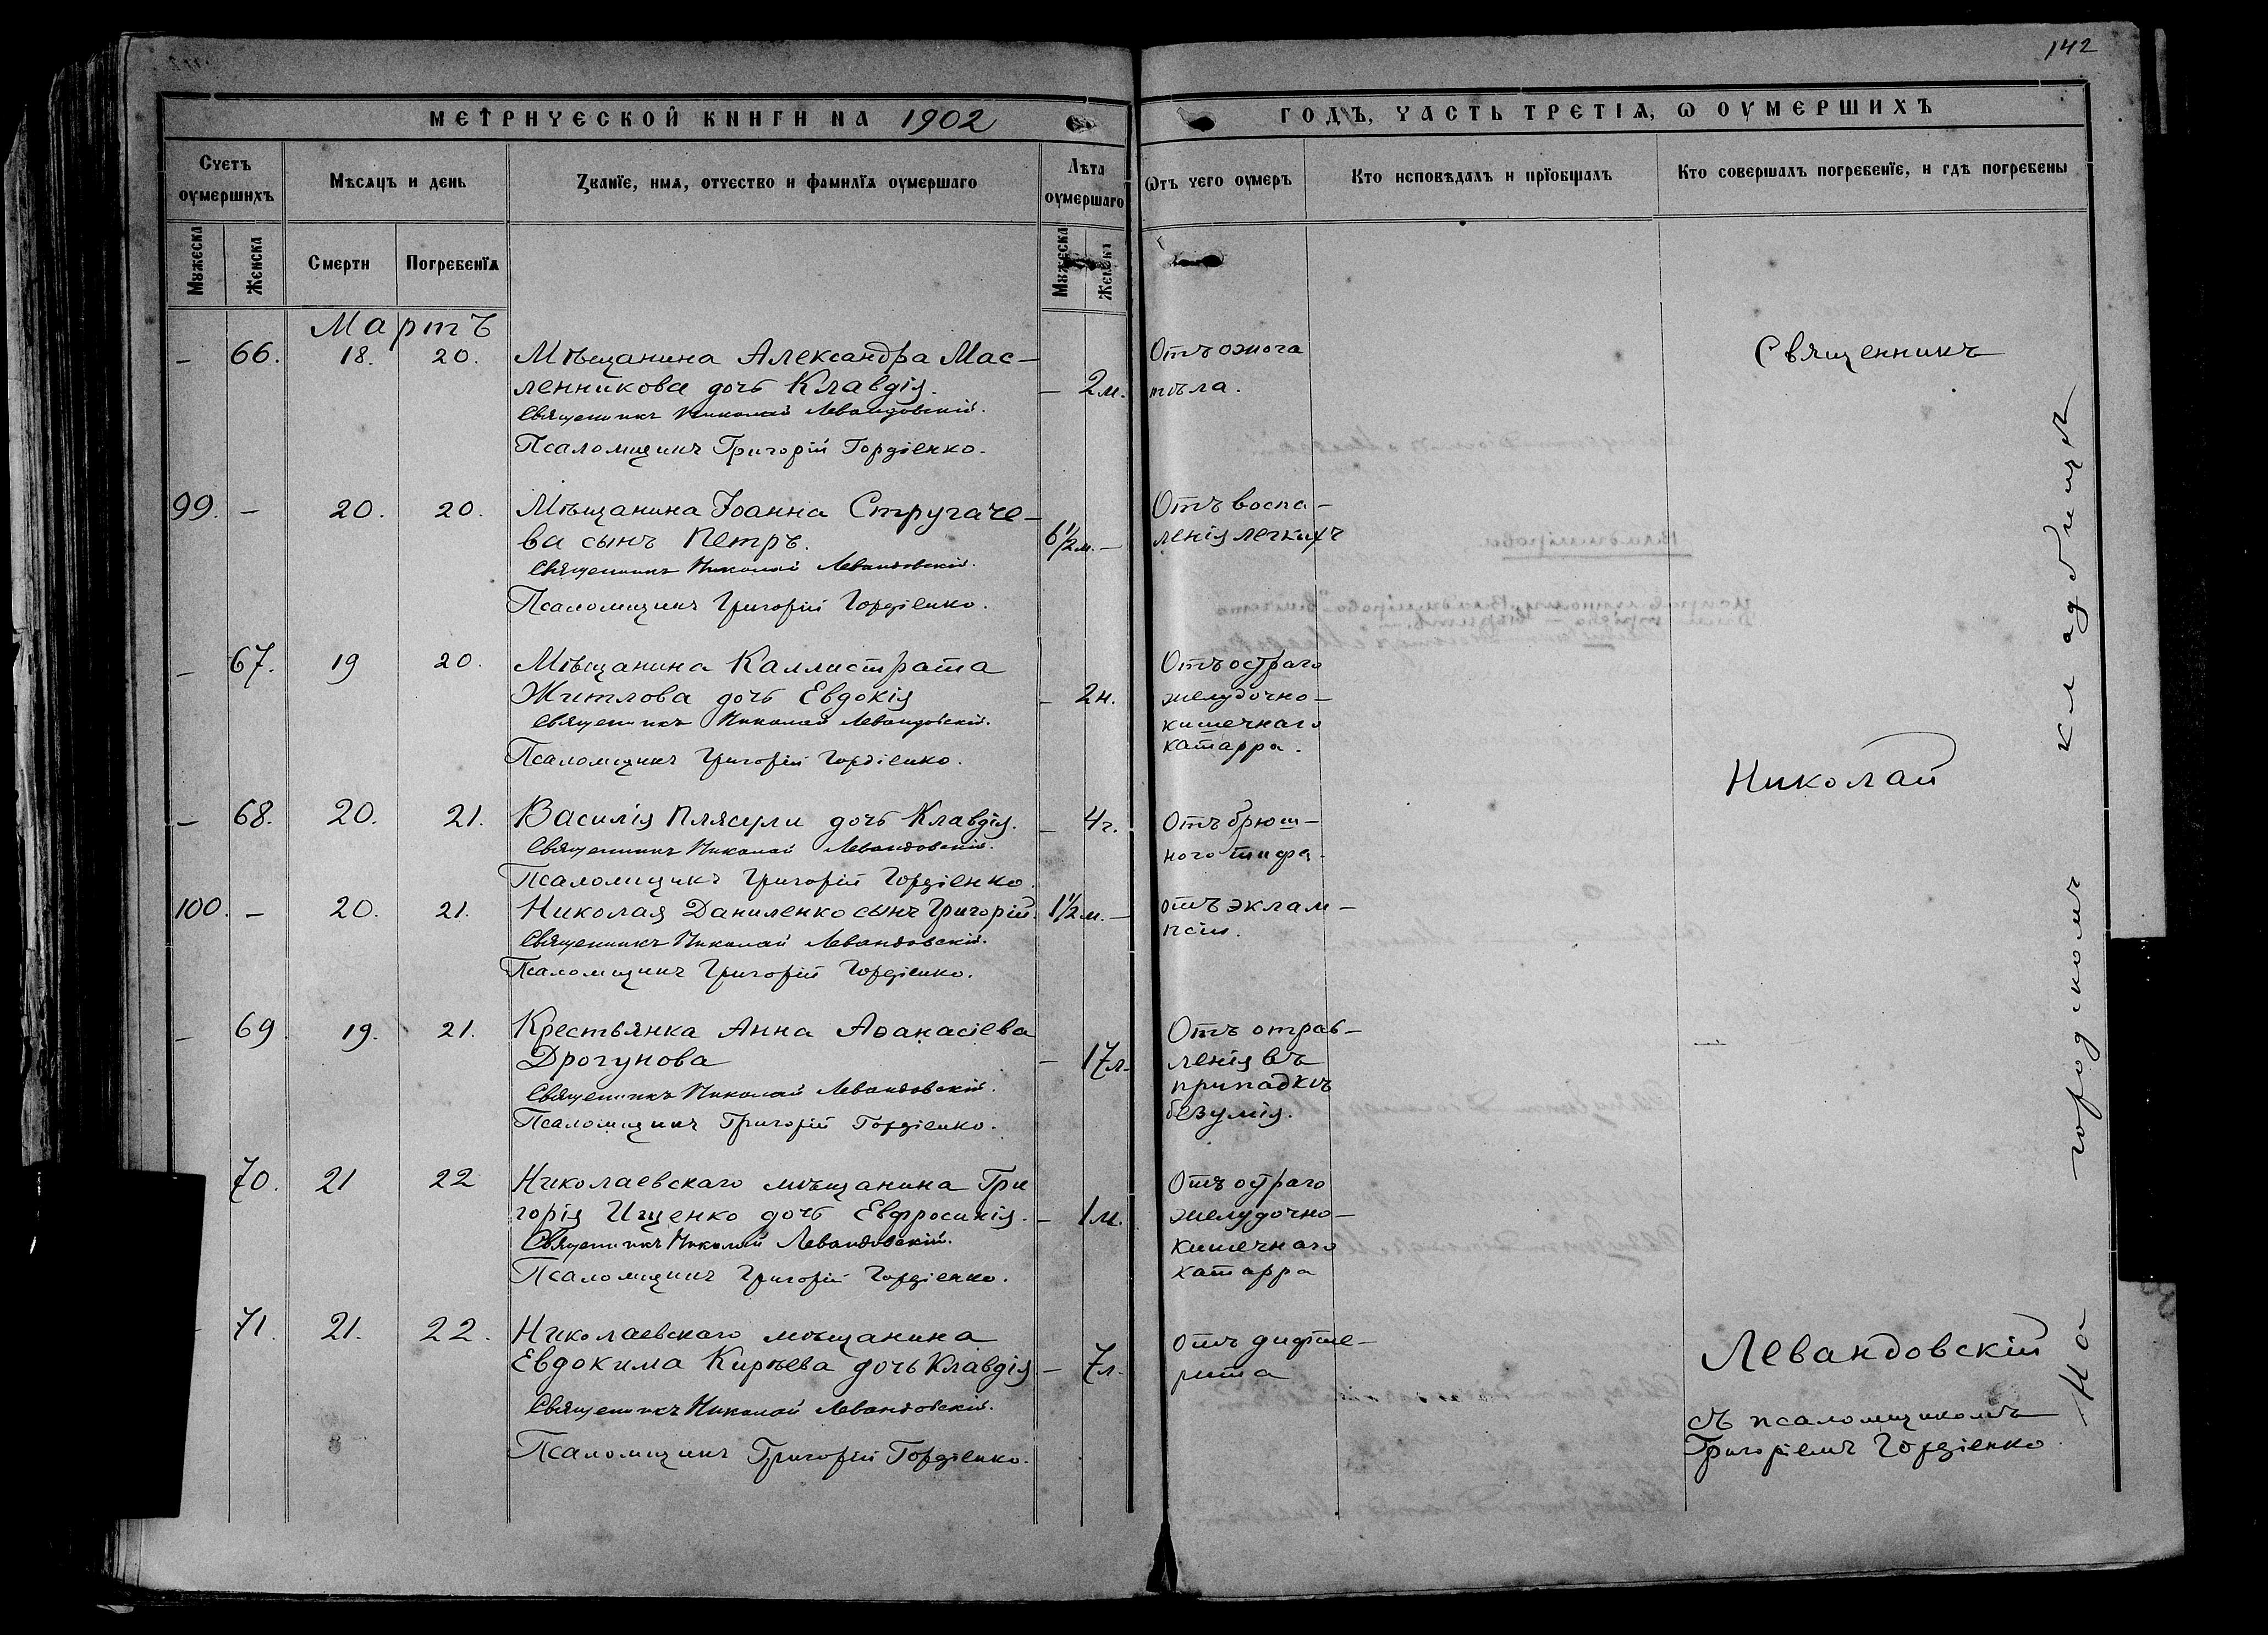 142
МЕТРИЧЕСКОЙ КНИГИ НА 1902
ГОДЪ, ЧАСТЬ ТРЕТІѦ, Ѡ ОУМЕРШИХЪ
Счетъ оумершихъ
Мѣсяцъ и день
Званїе, имѧ, отчество и фамилїѧ оумершаго
Лѣта оумершаго
Ѿтъ чего оумеръ
Кто исповѣдалъ и прїобщалъ
Кто совершалъ погребенїе, и гдѣ погребены
Мужеска
Женска
Смерти
Погребенїѧ
Мужеска
Женска
Мартъ
— 66. 18. 20. Мѣщанина Александра Мас— Отъ ожога
ленникова дочь Клавдія. — 2м. тѣла.
Священникъ Николай Левандовскій.
Псаломщикъ Григорій Гордіенко.
99. — 20. 20. Мѣщанина Іоанна Стругаче— Отъ воспа—
ва сынъ Петръ. 6½м. — ленія легкихъ
Священникъ Николай Левандовскій.
Псаломщикъ Григорій Гордіенко.
— 67. 19 20. Мѣщанина Каллистрата Отъ остраго
Житлова дочь Евдокія — 2н. желудочно—
Священникъ Николай Левандовскій. кишечнаго
Псаломщикъ Григорій Гордіенко. катарра.
— 68. 20. 21. Василія Плясули дочь Клавдія. — 4г. Отъ брюш—
Священникъ Николай Левандовскій. ного тифа.
Псаломщикъ Григорій Гордіенко.
100. — 20. 21. Николая Даниленко сынъ Григорій. 1½м. — отъ эклам—
Священникъ Николай Левандовскій. псіи.
Псаломщикъ Григорій Гордіенко.
— 69. 19. 21. Крестьянка Анна Аѳанасіева Отъ отрав—
Дрогунова — 17л. ленія въ
Священникъ Николай Левандовскій. припадкѣ
Псаломщикъ Григорій Гордіенко. безумія.
70. 21 22 Николаевскаго мѣщанина Гри Отъ остраго
горія Ищенко дочь Евфросинія. — 1м. желудочно—
Священникъ Николай Левандовскій. кишечнаго
Псаломщикъ Григорій Гордіенко. катарра
71. 21. 22. Николаевскаго мѣщанина Отъ дифте—
Евдокима Кирѣева дочь Клавдія — 7л. рита
Священникъ Николай Левандовскій.
Псаломщикъ Григорій Гордіенко.
Священникъ
Николай
Левандовскій
съ псаломщикомъ
Григоріемъ Гордіенко.
На городскомъ кладбищѣ